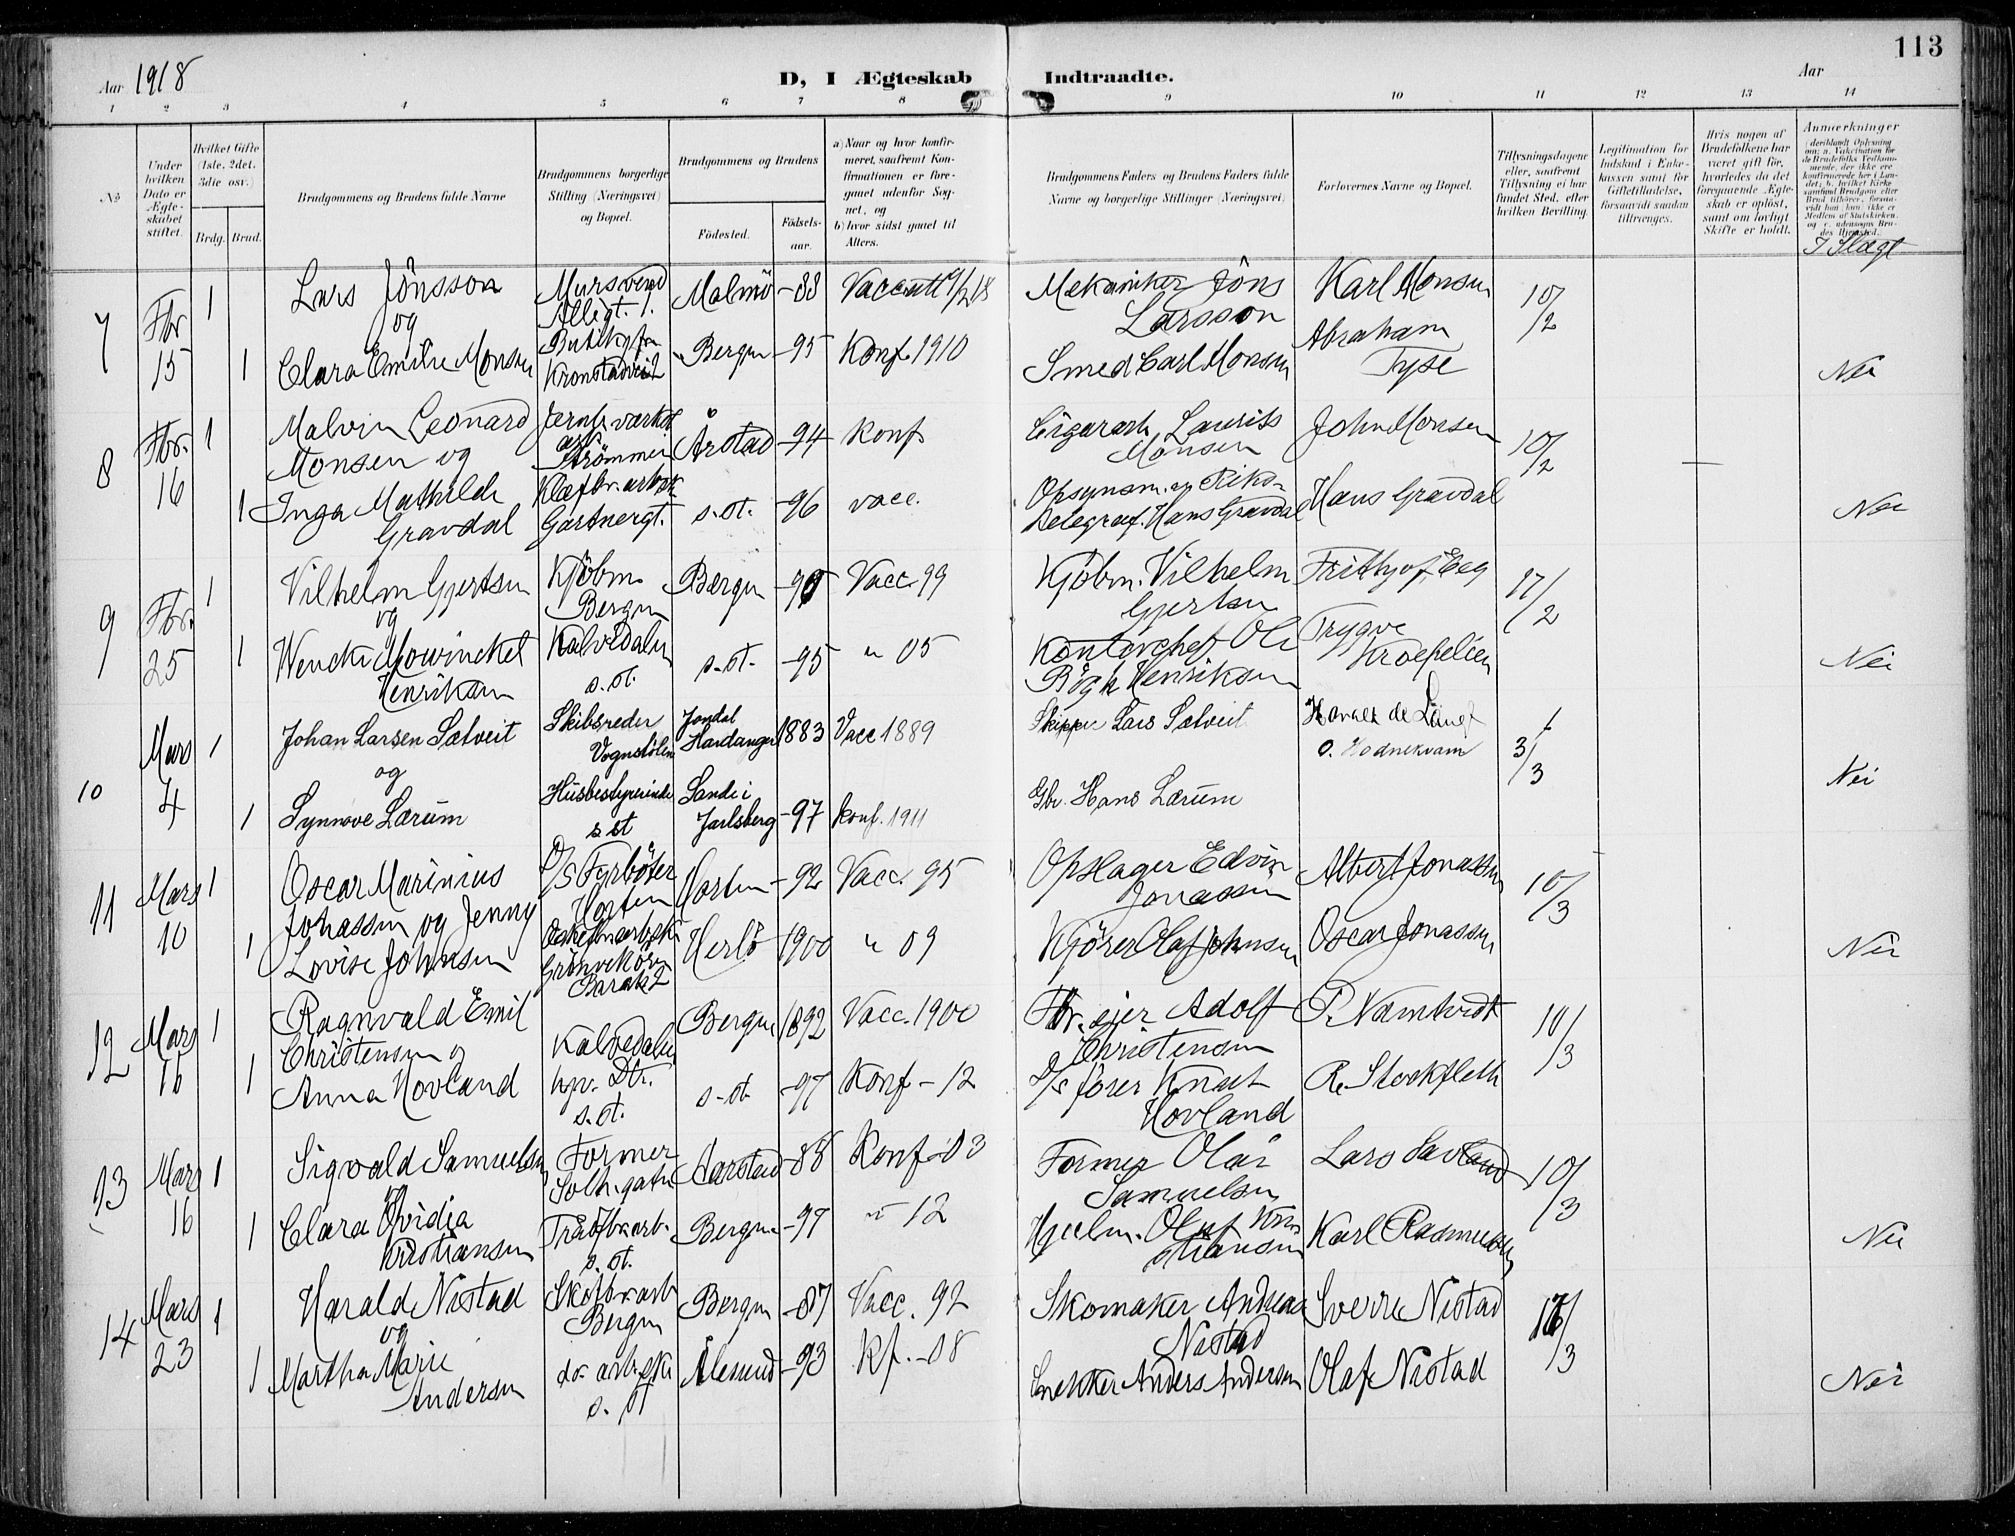 113
Aar 1918
D, I Ægteskab Indtraadte.
Aar
1 2 3 4 5 6 7 8 9 10 11 12 13 14
No
Under hvilken Dato er Ægteskabet stiftet.
Hvilket Gifte (1ste, 2det, 3die osv.)
Brdg. Brud.
Brudgommens og Brudens fulde Navne
Brudgommens borgerlige Stilling (Næringsvei) og Bopæl.
Brudgommens og Brudens
Fødested.
Fødselsaar.
a) Naar og hvor konfirmeret, saafremt Konfirmationen er foregaaet udenfor Sognet, og
b) hvor sidst gaaet til Alters.
Brudgommens Faders og Brudens Faders fulde Navne og borgerlige Stillinger (Næringsvei)
Forlovernes Navne og Bopæl.
Tillysningsdagene eller, saafremt Tillysning ei har fundet Sted, efter hvilken Bevilling.
Legitimation for Indskud i Enkekassen samt for Giftetilladelse, forsaavidt saadan tiltrænges.
Hvis nogen af Brudefolkene har været gift før, hvorledes da det foregaaende Ægteskab er opløst, samt om lovligt Skifte er holdt.
Anmærkninger
I Slægt
7 Fbr 15 1 Lars Jönsson og Malmö -88 Mekaniker Jöns Larsson Karl Monsen 10/2
1 Clara Emilie Monsen Bergen -95 Konf. 1910 Smed Carl Monsen Abraham Tyse Nei
8 Fbr. 16 1 Malvin Leonard Monsen og Årstad -94 Konf Lauritz Monsen John Monsen 10/2
1 Inga Mathilde Gravdal s. st. -96 vacc. Hans Gravdal Hans Gravdal Nei
9 Fbr. 25 1 Vilhelm Gjertsen og Kjöbm. Bergen Bergen Vacc. 99 Kjöbm. Vilhelm Gjertsen Frithjof Eeg 17/2
1 Wencke Mowinckel Henriksen Kalvedalen s. st. s. st. -95 " 05 Kontorchef Ole Bögh Henriksen Trygve Kroepelien Nei
10 Mars 4 1 Johan Larsen Sælveit og Skibsreder Vognstölen Jondal Hardanger 1883 Vacc 1889 Skipper Lars Sælveit 3/3
1 Synnøve Lærum Husbestyrerinde s st Sande i Jarlsberg -97 Konf. 1911 Gbr. Hans Lærum O. Hodnekvam Nei
11 Mars 10 1 Oscar Marinius Jonassen og D/S Fyrböter Horten Horten -92 Vacc. 95 Opslager Edvin Jonassen Albert Jonassen 10/3
1 Jenny Lovise Johnsen Herlö 1900 " 09 Kjörer Olaf Johnsen Oscar Jonassen Nei
12 Mars 16 1 Ragnvald Emil Christensen og Kalvedalen Bergen 1892 Vacc. 1900 Adolf Christensen 10/3
1 Anna Hovland s. st. s. st. -97 Konf - 12 D/S förer Knut Hovland R. Stockfleth
13 Mars 16 1 Sigvald Samuelsen Former Aarstad -88 Konf -03 Former Olai Samuelsen 10/3
1 Clara Ovidia Kristiansen s. st. Bergen -97 " - 12 Karl Rasmussen Nei
14 Mars 23 1 Harald Nistad og Bergen Bergen -87 Vacc. 92 Skomaker Andreas Nistad Sverre Nistad
1 Martha Marie Andersen s. st Ålesund -93 Kf. - 08 Snekker Anders Andersen Olaf Nistad Nei